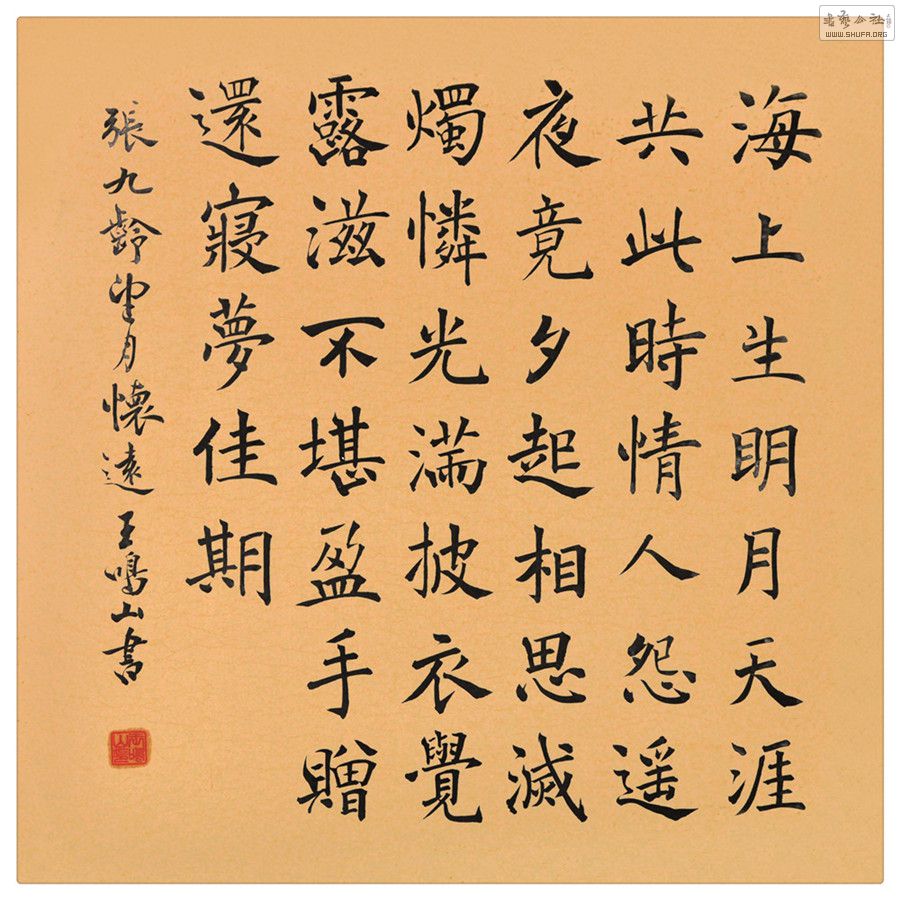 海上生明月天涯
共此時情人怨遥
夜竟夕起相思滅
燭憐光滿披衣覺
露滋不堪盈手贈
還寢夢佳期
張九齡望月懷遠 王鳴山書
書藝公社
WWW.SHUFA.ORG